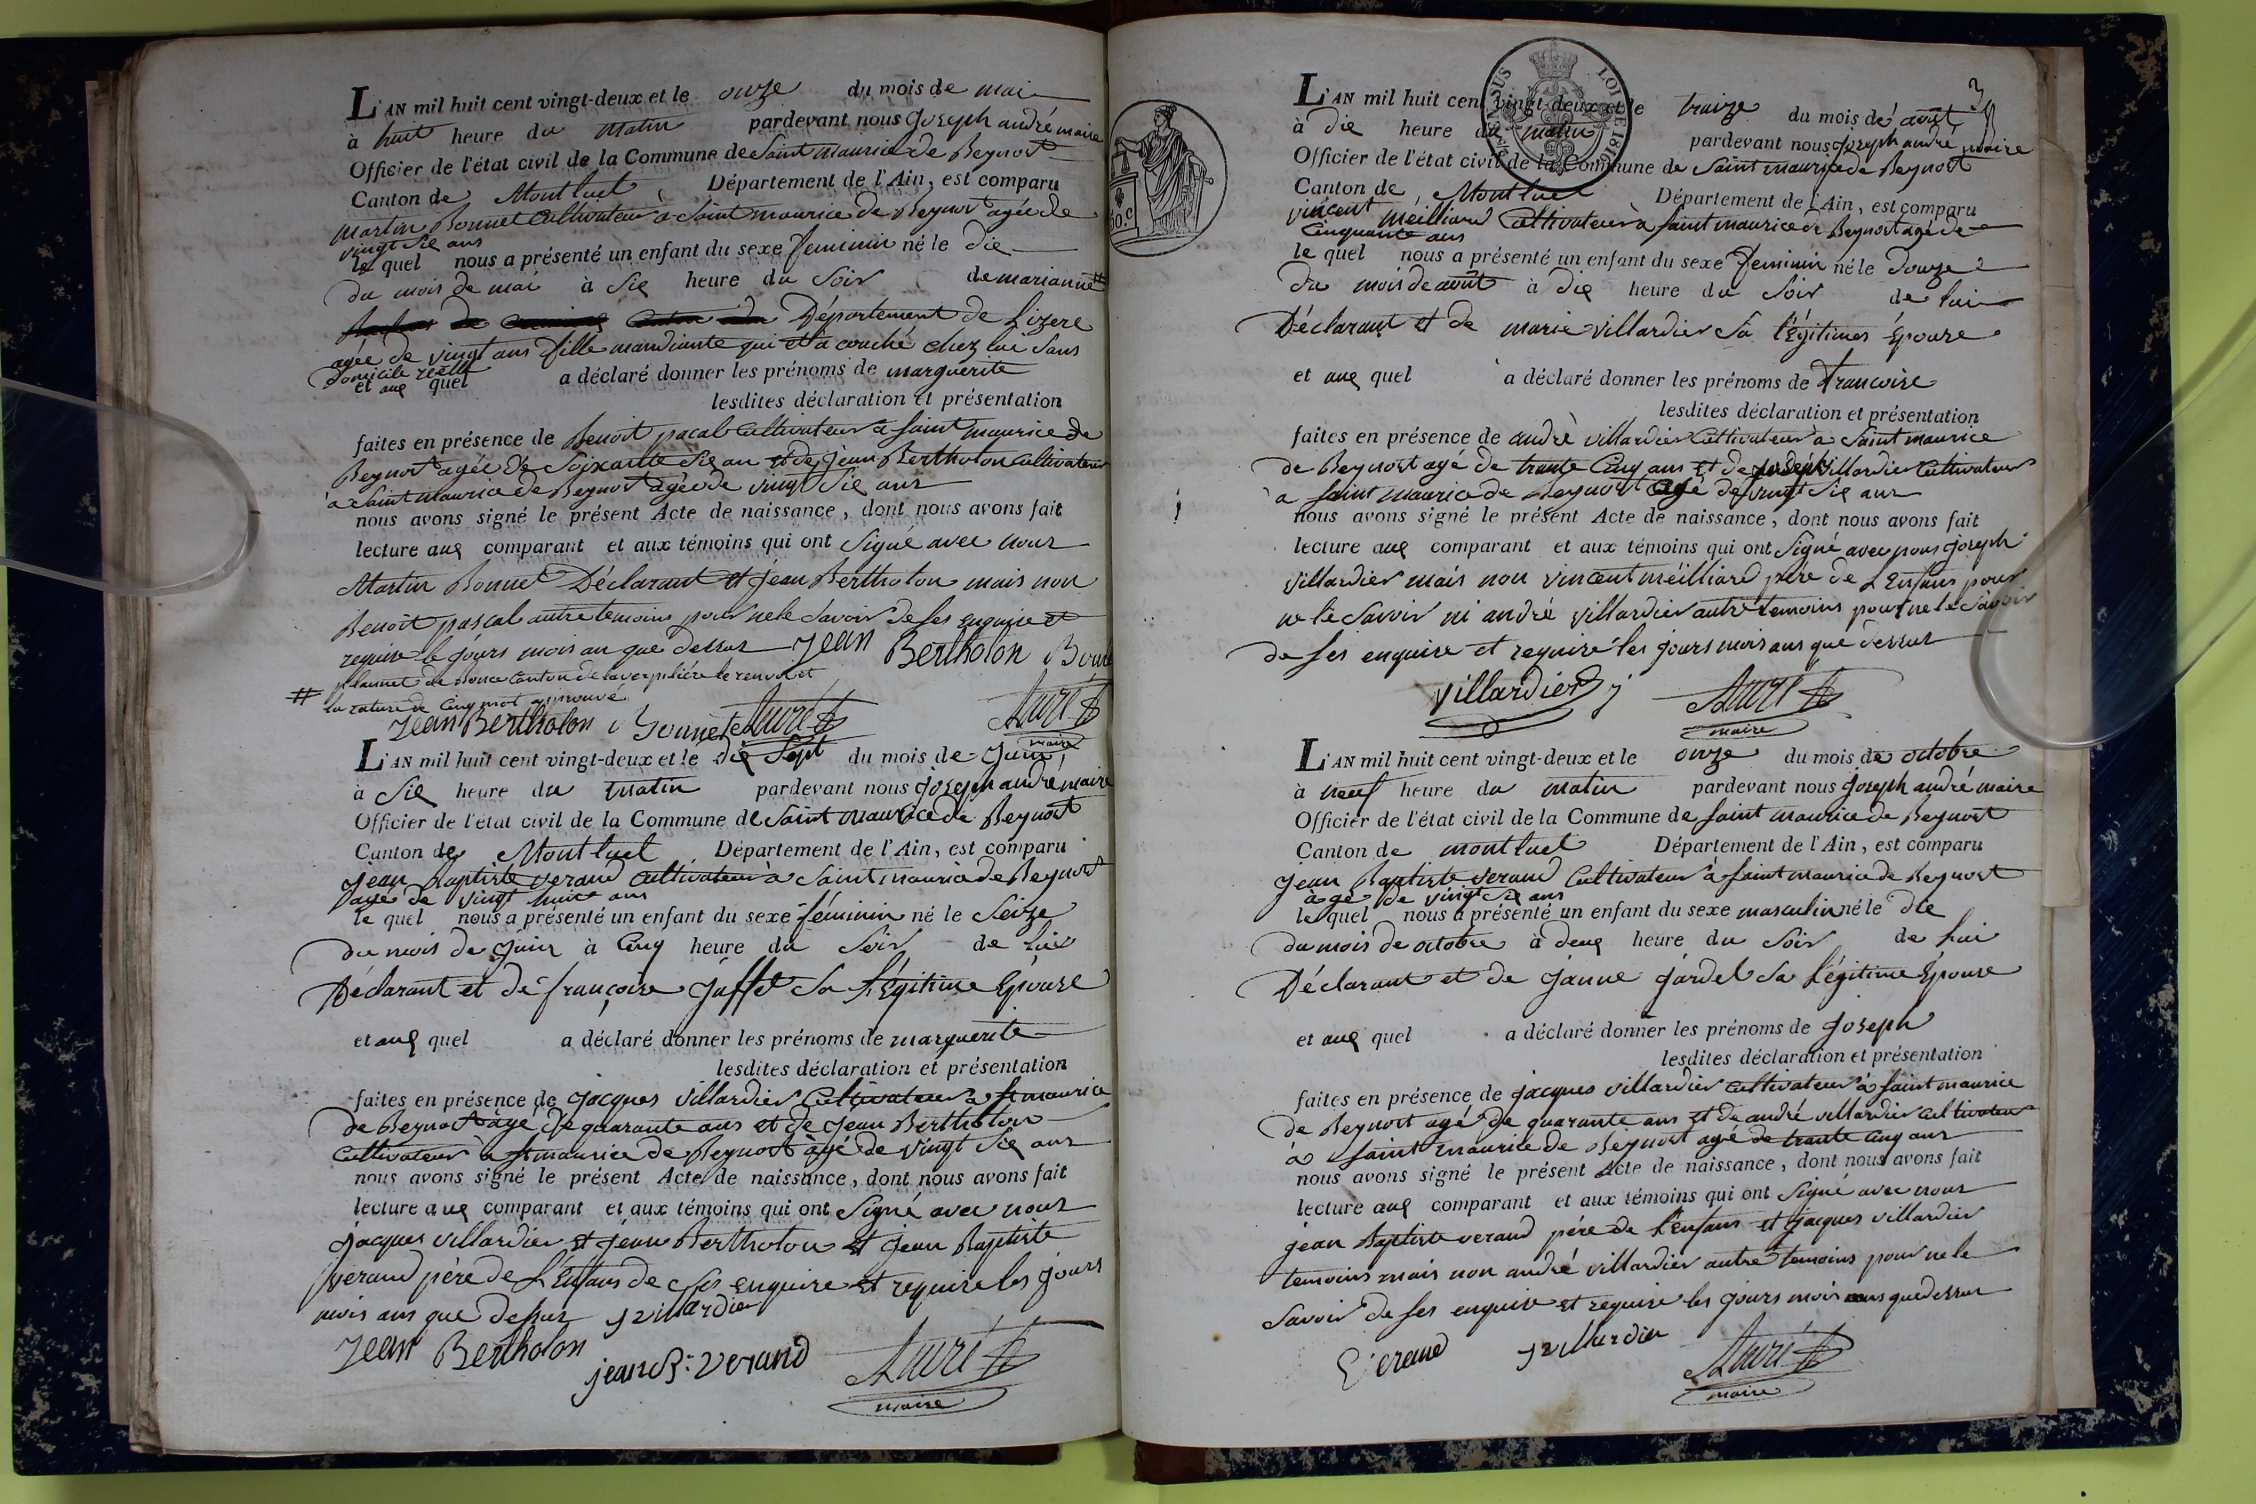 L'AN mil huit cent vingt-deux et le onze du mois de mai
à huit heure du matin pardevant nous Joseph andré maire
Officier de l'état civil de la Commune de Saint maurice de Beynost
Canton de Montluel Département de l'Ain, est comparu
martin Bonnet Cultivateur à Saint maurice de Beynost agée de
vingt Sie ans
le quel nous a présenté un enfant du sexe feminin né le die
du mois de mai à Sie heure du Soir de marianne #
Département de Lizere
agée de vingt ans fille mandiante qui et a couché chez lui Sans
Domicile reelle
et auq quel a déclaré donner les prénoms de marguerite
lesdites déclaration et présentation
faites en présence de Benoit pacal Cultivateur a Saint maurice de
Beynost agée de Soixante Sie an et de Jean Bertholon Cultivateur
à Saint maurice de Beynost agée de vingt Sie ans
nous avons signé le présent Acte de naissance, dont nous avons fait
lecture auq comparant et aux témoins qui ont Signé avec nous
Martin Bonnet Déclarant et Jean Bertholon mais non
Benoit pascal autre temoins pour ne le Savoir de Ses enquire et
require le jours mois an que dessus Jean Bertholon Bonne
# plannet de Canton de la verpiliére le renvoi et
la rature de Cinq mot aprouvé
Jean Bertholon Bonnet André
André maire
L'AN mil huit cent vingt-deux et le die Sept du mois de Juin
à Sie heure du matin pardevant nous Joseph andré maire
Officier de l'état civil de la Commune de Saint maurice de Beynost
Canton de Montluel Département de l'Ain, est comparu
Jean Baptiste verand Cultivateur à Saint maurice de Beynost
agé de vingt huit ans
le quel nous a présenté un enfant du sexe féminin né le Seize
du mois de Juin à Cinq heure du Soir de lui
Déclarant et de françoise Jaffet Sa Légitime Epouse
et auq quel a déclaré donner les prénoms de marguerite
lesdites déclaration et présentation
faites en présence de Jacques villardier Cultivateur a St maurice
de Beynost âgé de quarante ans et de Jean Bertholon
Cultivateur à St maurice de Beynost àgé de vingt Sie ans
nous avons signé le présent Acte de naissance, dont nous avons fait
lecture auq comparant et aux témoins qui ont Signé avec nous
Jacques villardier et Jean Bertholon et Jean Baptiste
verand père de L'Enfans de Ses enquire et require les jours
mois ans que dessus J villardier
Jean Bertholon jean B: verand André
maire
3
L'AN mil huit cent vingt-deux et le traize du mois de aout
à die heure du matin pardevant nous Joseph andré maire
Officier de l'état civil de la Commune de Saint maurice de Beynost
Canton de Montluel Département de l'Ain, est comparu
vincent méilliand Cultivateur à Saint maurice de Beynost agé de
Cinquante ans
le quel nous a présenté un enfant du sexe feminin né le Douze
du mois de août à die heure du Soir de lui
Déclarant et de marie villardier Sa Légitimes Épouse
et auq quel a déclaré donner les prénoms de francoise
lesdites déclaration et présentation
faites en présence de andré villardier Cultivateur a Saint maurice
de Beynost agé de trante Cinq ans et de joseph villardier Cultivateur
à Saint maurice de Beynost agé de vingt Sie ans
nous avons signé le présent Acte de naissance, dont nous avons fait
lecture auq comparant et aux témoins qui ont Signé avec nous joseph
villardier mais non vincent méilliand père de L'Enfans pour
ne le Savoir ni andré villardier autre temoins pour ne le Savoir
de Ses enquire et requiré les jours mois ans que dessus
villardier j André
maire
L'AN mil huit cent vingt-deux et le onze du mois de octobre
à neuf heure du matin pardevant nous Joseph andré maire
Officier de l'état civil de la Commune de Saint maurice de Beynost
Canton de montluel Département de l'Ain, est comparu
Jean Baptiste verand Cultivateur à Saint maurice de Beynost
àgé de vingt Sie ans
le quel nous a présenté un enfant du sexe masculin né le die
du mois de octobre à deuq heure du Soir de lui
Déclarant et de Janne Jardel Sa Légitime Épouse
et auq quel a déclaré donner les prénoms de Joseph
lesdites déclaration et présentation
faites en présence de Jacques villardier Cultivateur à Saint maurice
de Beynost agé de quarante ans et de andré villardier Cultivateur
à Saint maurice de Beynost agé de trante Cinq ans
nous avons signé le présent Acte de naissance, dont nous avons fait
lecture auq comparant et aux témoins qui ont Signé avec nous
jean Baptiste verand pére de L'enfans et Jacques villardier
temoins mais non andré villardier autre temoins pour ne le
Savoir de Ses enquire et require les jours mois ans que dessus
verand J villardier André
maire